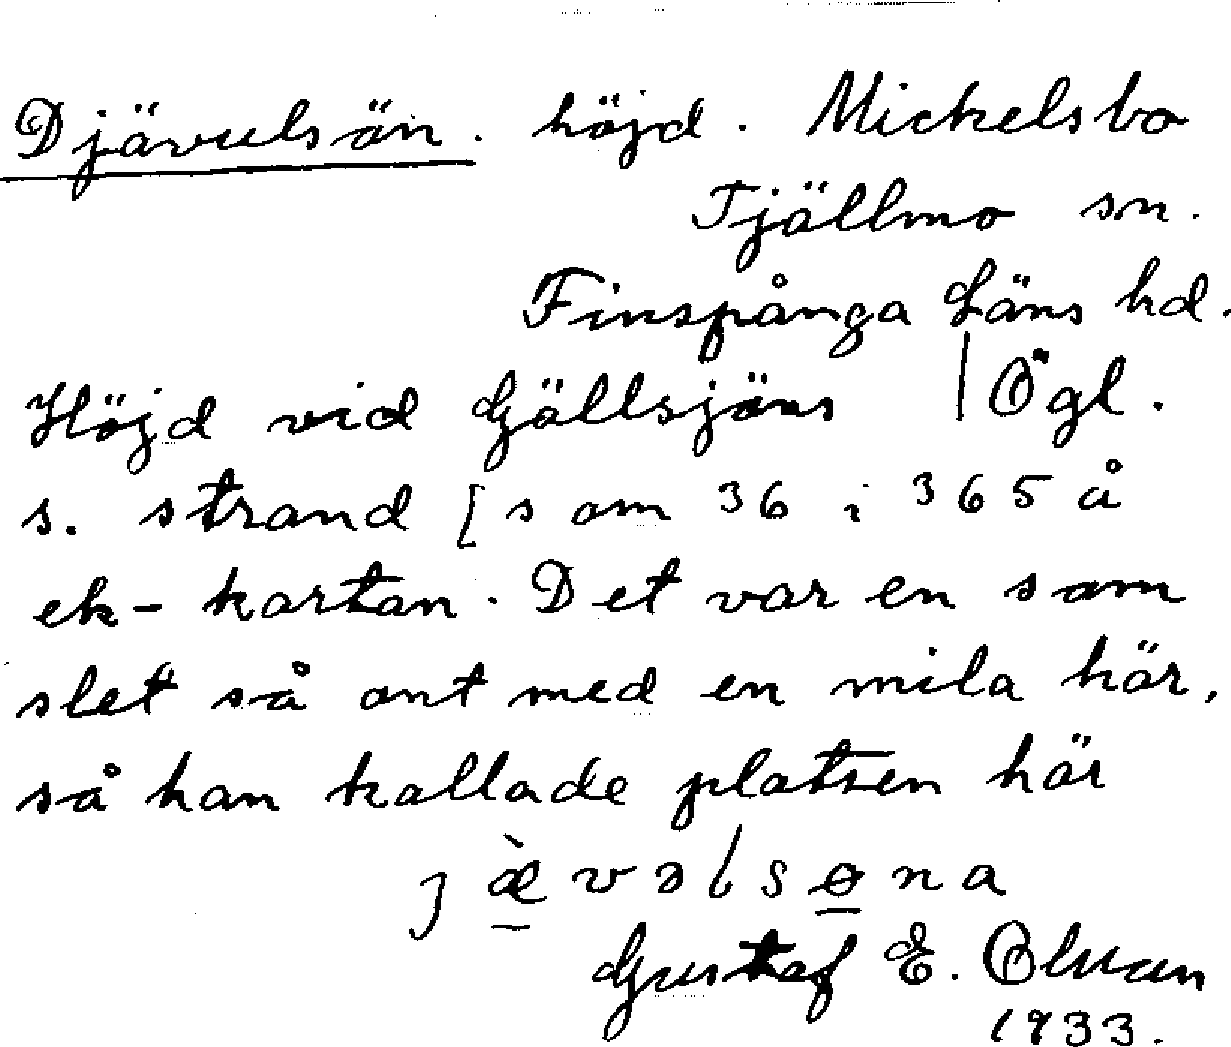 Djävulsön. höjd. Mickelsbo
Tjällmo sn.
Finspånga Läns hd.
Höjd vid Gjällsjöns | Ögl.
s. strand [som 36 i 365 å
ek-kartan. Det var en som
slet så ont med en mila här,
så han kallade platsen här
jæ̀vəlsøna
Gustaf E. Olman
1933.